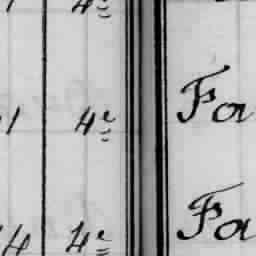 4e
1 4e Fa
14 4e Fa